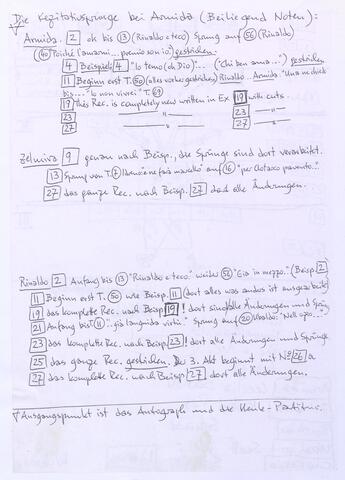 Die Rezitativsprünge bei Armida (Beiliegend Noten):
Armida. 2 ok bis 13 (Rinaldo è teco) Sprung auf 56 (Rinaldo)
(40 Poichè l'amarmi... premio son io) gestrichen.
4 Beispiel 4 "Io temo (oh Dio)"... ("chi ben ama..." gestrichen
11 Beginn erst T. 50 (alles vorher gestrichen) Rinaldo.. Armida. "Una ne chiedi
bis..." Io non vivrei" T. 69
19 This Rec. is completely new written in Ex. 19 with cuts.
23 " 23 "
27 " 27 "
Zelmira 9 genau nach Beisp., die Sprünge sind dort verarbeitet.
13 Sprung von T. 7 auf 16 "per Clotarco pavento.."
27 das ganze Rec. nach Beisp. 27 dort alle Änderungen.
Rinaldo 2 Anfang bis 13 "Rinaldo è teco." weiter 56 "Gia in mezzo." (Beisp. 2
11 Beginn erst T. 50 wie Beisp. 11 (dort alles was anders ist ausgearbeitet
19 das komplette Rec. nach Beisp. 19! dort sind alle Änderungen und Sprünge
21 Anfang bis T. 11 "..già languida virtù." Sprung auf 20 Ubaldo: "Nell'"
23 das komplette Rec. nach Beisp. 23! dort alle Änderungen und Sprünge
25 das ganze Rec. gestrichen. Der 3. Akt beginnt mit No 26 a
27 das komplette Rec. nach Beisp. 27 dort alle Änderungen.
Ausgangspunkt ist das Autograph und die Henle-Partitur.